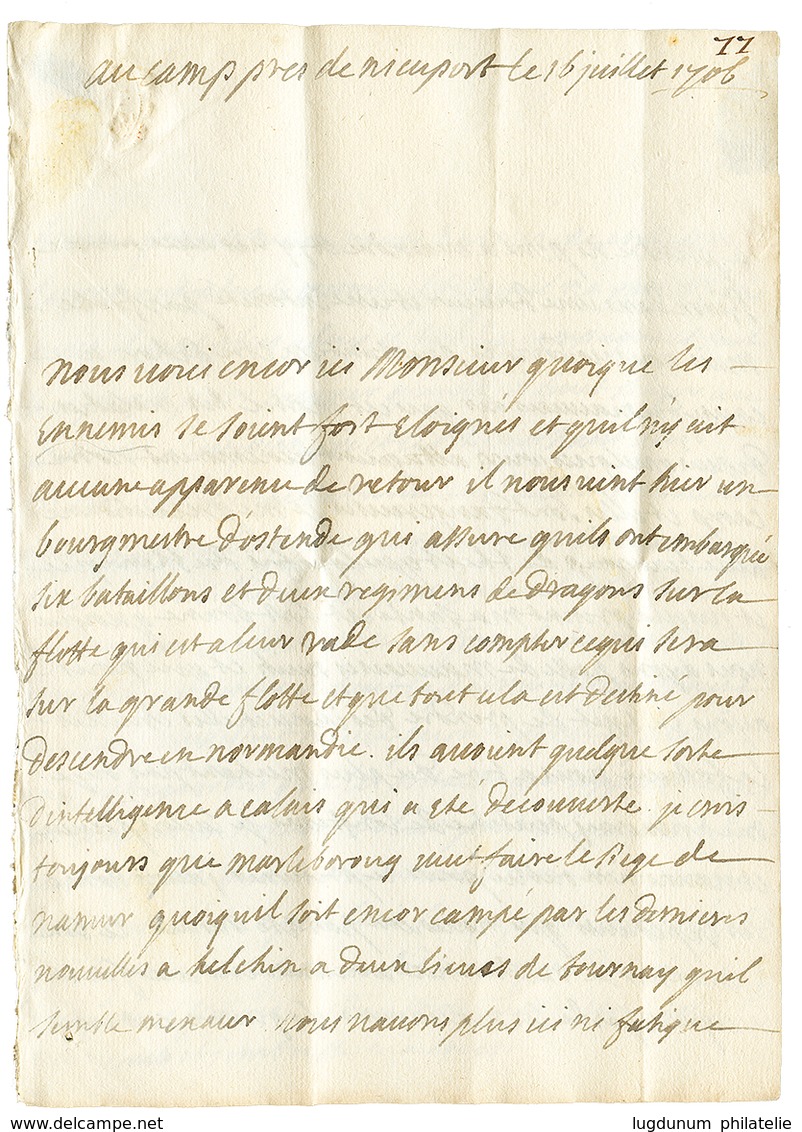 77
au camp pres de nieuport le 16 juillet 1706
nous voici encor ici Monsieur quoique les
Ennemis se soient fort Eloignes et quil n'y ait
aucune apparence de retour il nous vint hier un
bourgmestre d'ostende qui assure quils ont embarqué
six bataillons et deux regimens de dragons sur la
flotte qui est a leur rade sans compter ce qui sera
sur la grande flotte et que tout cela est destiné pour
descendre en normandie. ils avoient quelque sorte
d'intelligence a calais qui a eté decouverte. je crois
toujours que marleboroug veut faire le siege de
namur quoiquil soit encor campé par les dernieres
nouvelles a helchin a deux lieues de tournay quil
semble menacer. nous navons plus ici ni fatigue
delcampe.net
lugdunum philatelie